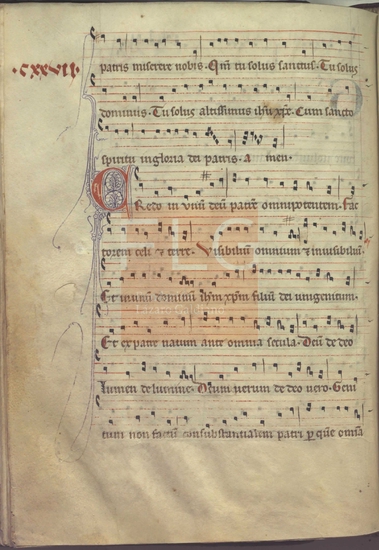 ·CXXVII·
patris miserere nobis. Qm̄ tu solus sanctus. Tu solus
dominus. Tu solus altissimus ihu xpē. Cum sancto
spiritu in gloria dei patris. a men.
CRedo in unū deū patrē omnipotentem. Fac
torem celi & terre. Visibilium omnium & inuisibiliū.
Et in unū dominū ihm xpm filiū dei unigenitum.
Et ex patre natum ante omnia secula. Deū de deo
lumen de lumine. Deum uerum de deo uero. Geni
tum non factū consubstantialem patri p que omīa